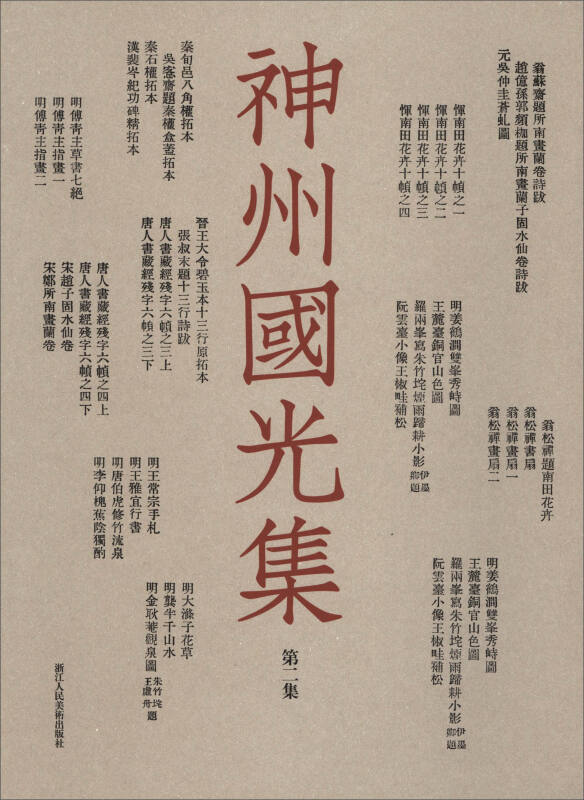 神州國光集
第二集
翁蘇齋題所南畫蘭卷詩跋
趙億孫郭頻枷題所南畫蘭子固水仙卷詩跋
元吳仲圭蒼虬圖
惲南田花卉十幀之一
惲南田花卉十幀之二
惲南田花卉十幀之三
惲南田花卉十幀之四
秦旬邑八角權拓本
吳愙齋題秦權盒蓋拓本
秦石權拓本
漢裴岑紀功碑精拓本
明傅青主草書七絕
明傅青主指畫一
明傅青主指畫二
晉王大令碧玉本十三行原拓本
張叔未題十三行詩跋
唐人書藏經殘字六幀之三上
唐人書藏經殘字六幀之三下
唐人書藏經殘字六幀之四上
唐人書藏經殘字六幀之四下
宋趙子固水仙卷
宋鄭所南畫蘭卷
明姜鶴澗雙峯秀峙圖
王麓臺銅官山色圖
羅兩峯寫朱竹垞煙雨歸耕小影伊墨卿題
阮雲臺小像王椒畦補松
翁松禪題南田花卉
翁松禪書扇
翁松禪畫扇一
翁松禪畫扇二
明王常宗手札
明王雅宜行書
明唐伯虎修竹流泉
明李仰槐蕉陰獨酌
明姜鶴澗雙峯秀峙圖
王麓臺銅官山色圖
羅兩峯寫朱竹垞煙雨歸耕小影伊墨卿題
阮雲臺小像王椒畦補松
明大滌子花草
明龔半千山水
明金耿菴觀泉圖朱竹垞王虛舟題
浙江人民美術出版社